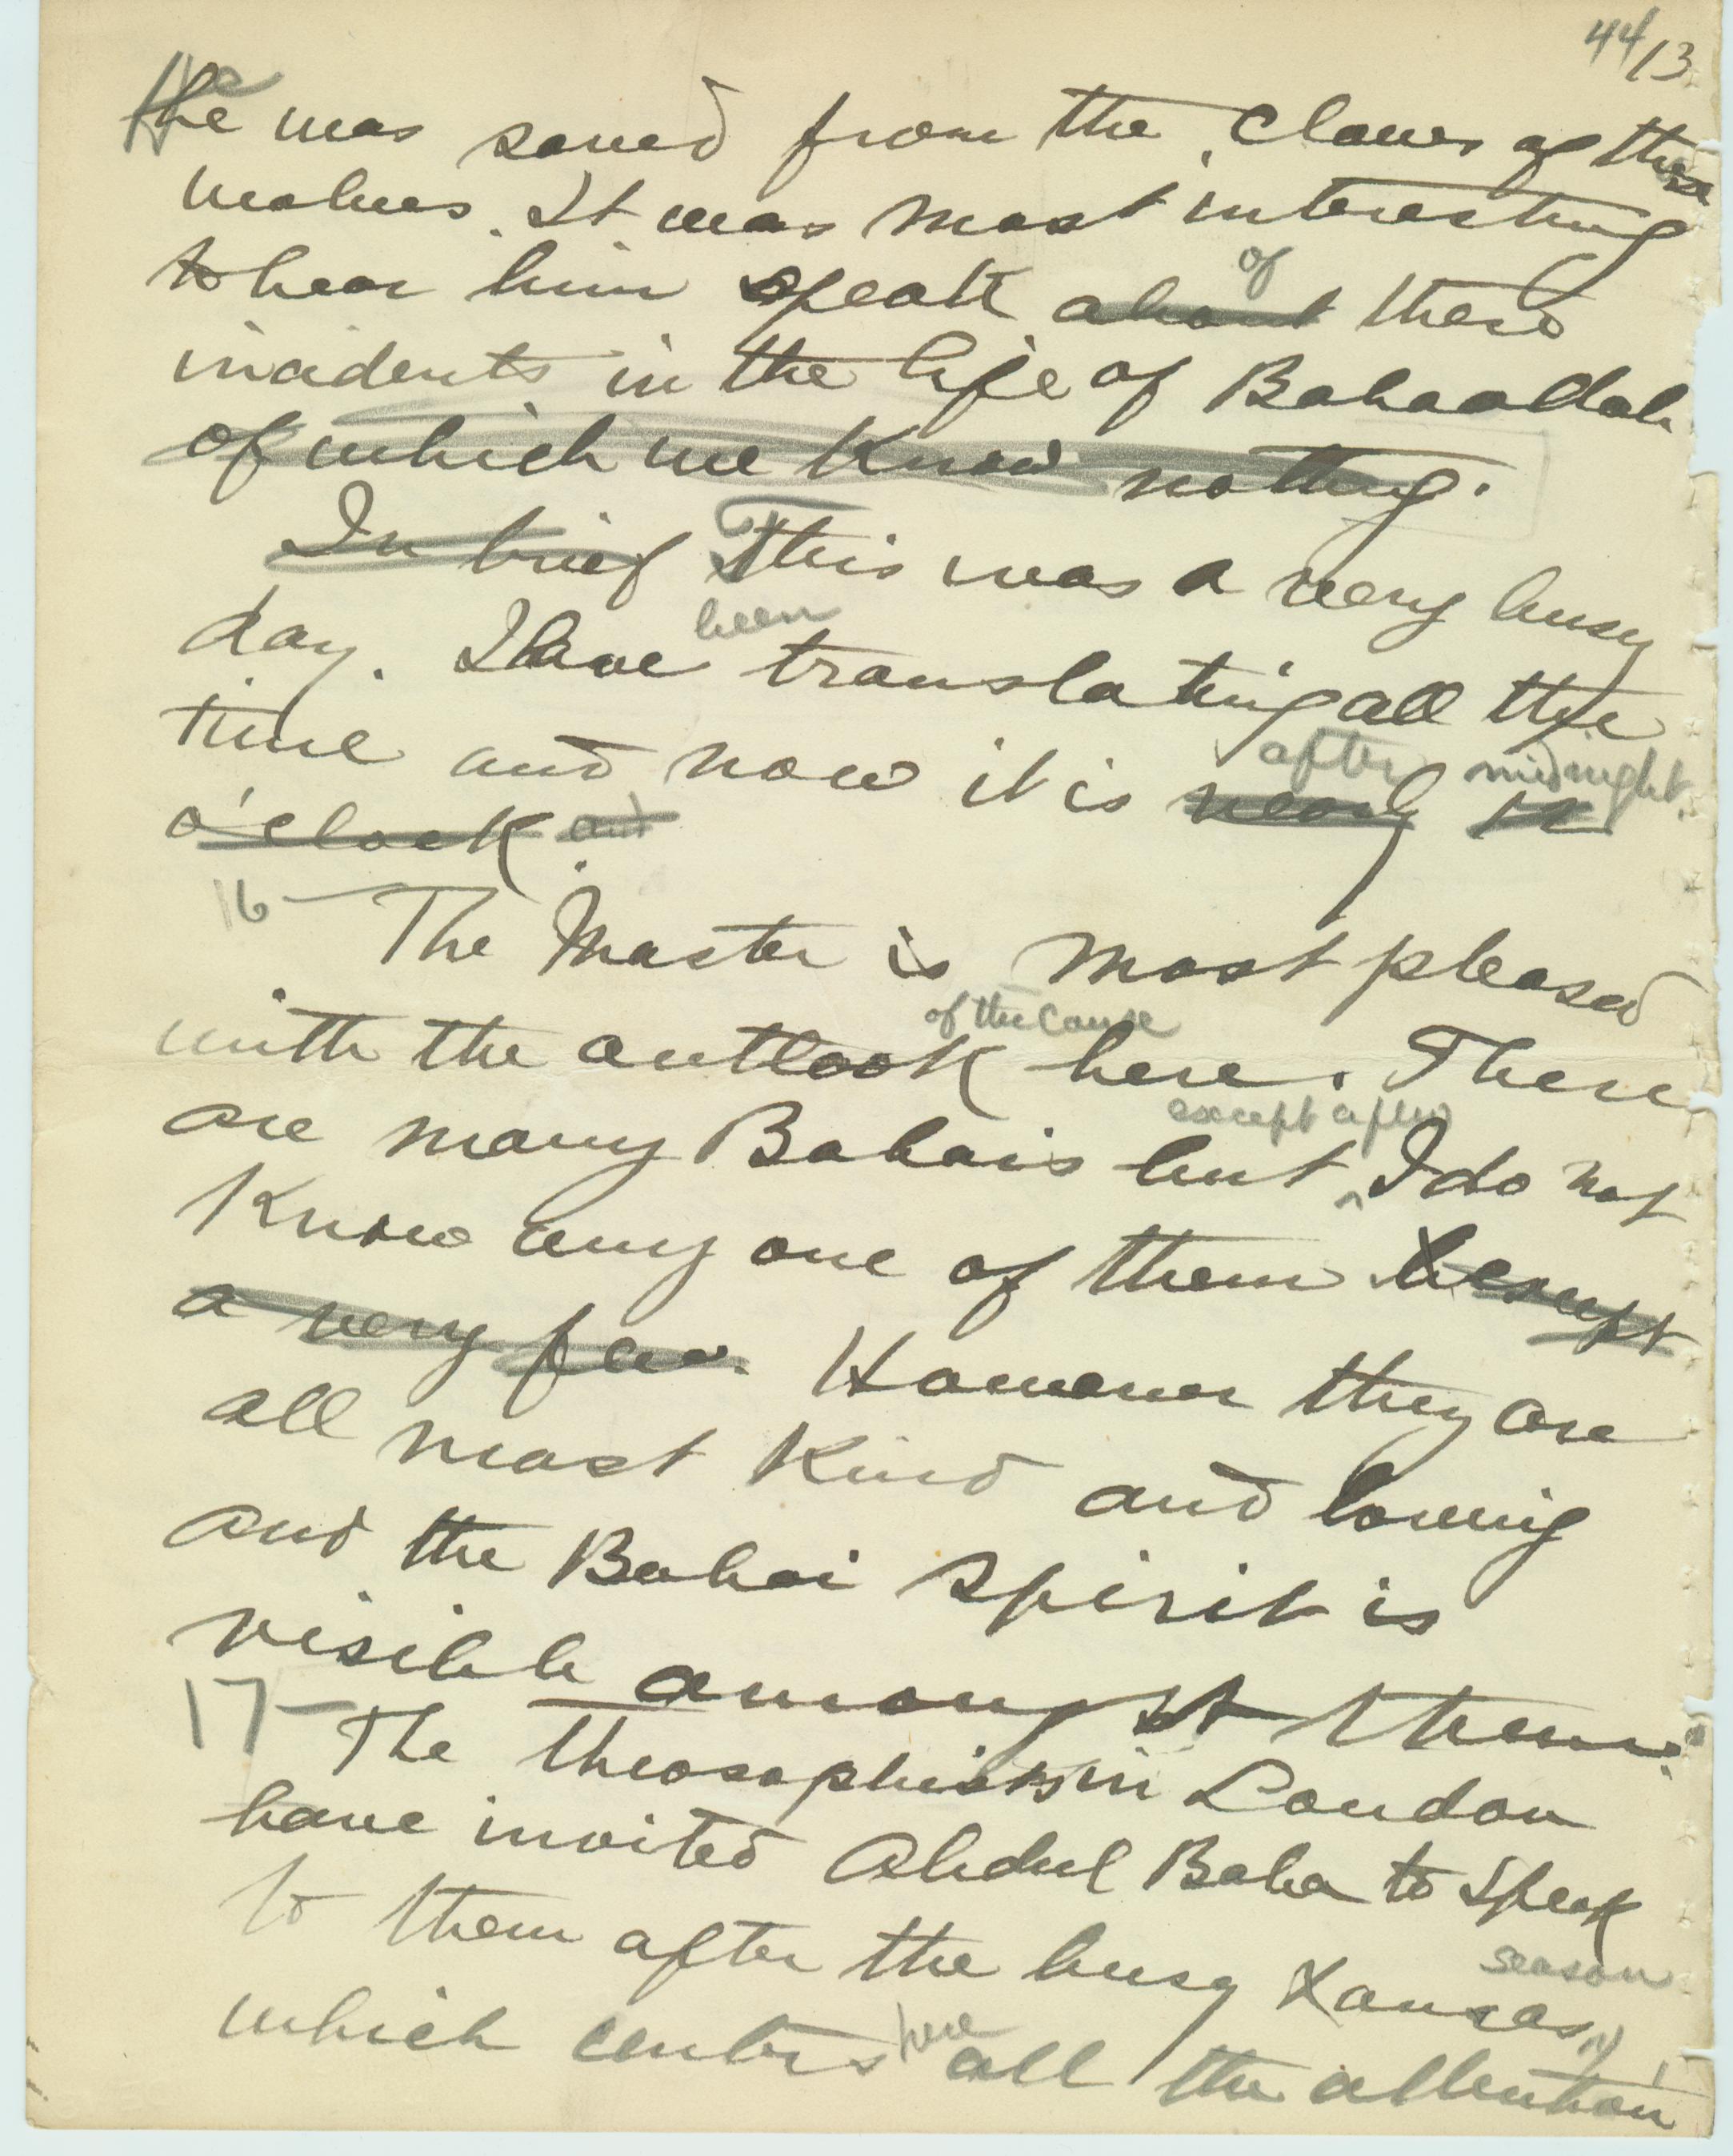 44/13
He was saved from the claws of these
wolves. It was most interesting
to hear him speak about of these
incidents in the life of Bahaollah
of which we know nothing.
In brief This was a very busy
day. I have been translating all the
time and now it is nearly 12 after midnight.
o'clock and
16 - The Master is most pleased
with the outlook of the Cause here. There
are many Bahais but except a few I do not
know any one of them except
a very few. However they are
all most kind and loving
and the Bahai spirit is
visible amongst them.
17 - The theosophists in London
have invited Abdul Baha to speak
to them after the busy Xmas season
which centers here all the attention